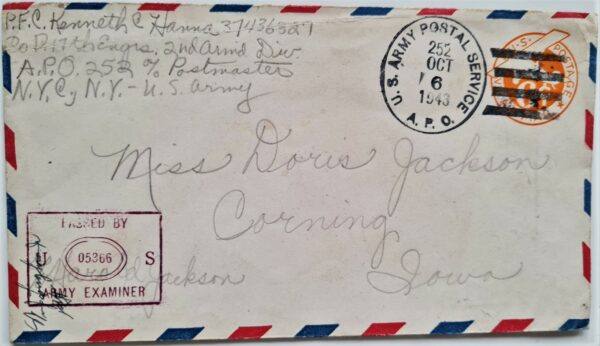 P.F.C. Kenneth C Hanna 37436527
Co D. 17th Engrs. 2nd Armd Div
A.P.O. 252 % Postmaster
N.Y.C., N.Y. - U.S. Army
U. S. ARMY POSTAL SERVICE
252
OCT
6
1943
A. P. O.
U.S. POSTAGE
Miss Doris Jackson
Corning
Iowa
PASSED BY
U 05366 S
ARMY EXAMINER
Jackson